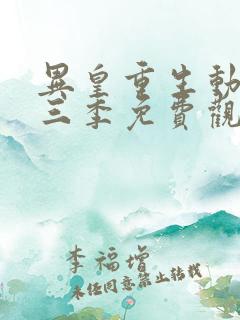 異皇重生動
三季免費觀
李福增
未經同意禁止轉載